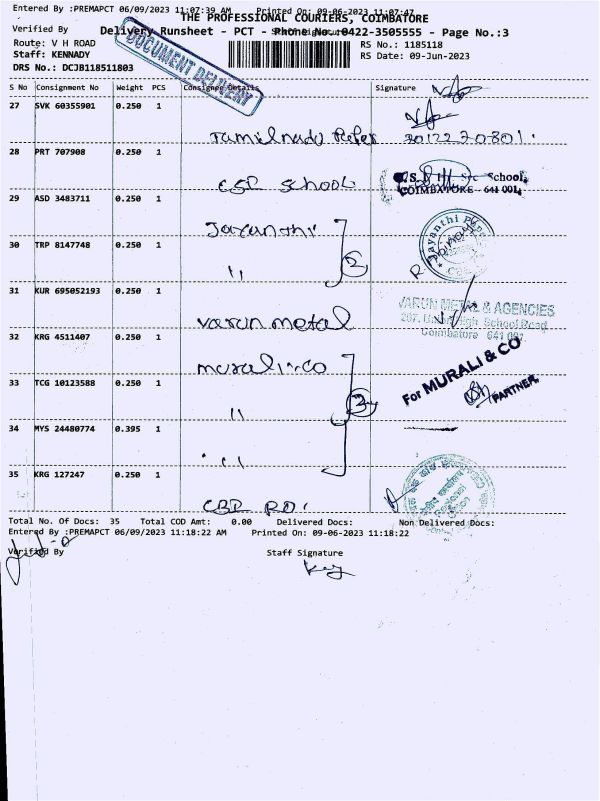 Entered By :PREMAPCT 06/09/2023 11:07:39 AM Printed On: 09-06-2023 11:07:47
THE PROFESSIONAL COURIERS, COIMBATORE
Verified By
Delivery Runsheet - PCT - Phone No.:0422-3505555 - Page No.:3
Route: V H ROAD
RS No.: 1185118
Staff: KENNADY
RS Date: 09-Jun-2023
DRS No.: DCJB118511803
DOCUMENT DELIVERY
S No Consignment No Weight PCS Consignee Details Signature
27 SVK 60355901 0.250 1
Tamilnadu
28 PRT 707908 0.250 1
CSI School
C.S.I. School,
COIMBATORE - 641 001.
29 ASD 3483711 0.250 1
Jayanthi
30 TRP 8147748 0.250 1
"
2
31 KUR 695052193 0.250 1
varun metal
VARUN METAL & AGENCIES
High School Road
Coimbatore 641 001.
32 KRG 4511407 0.250 1
murali & co
For MURALI & CO
PARTNER
33 TCG 10123588 0.250 1
"
3
34 MYS 24480774 0.395 1
"
35 KRG 127247 0.250 1
Total No. Of Docs: 35 Total COD Amt: 0.00 Delivered Docs: Non Delivered Docs:
Entered By :PREMAPCT 06/09/2023 11:18:22 AM Printed On: 09-06-2023 11:18:22
Verified By
Staff Signature